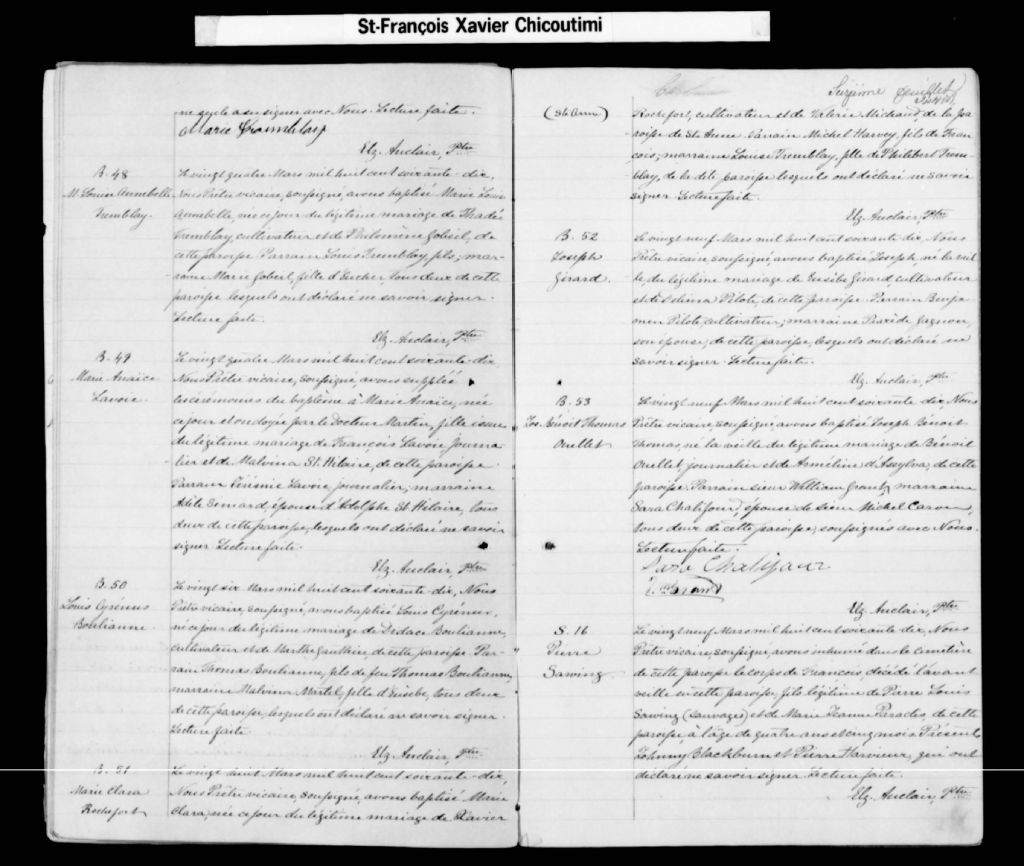 St-François Xavier Chicoutimi
ne qu'elle a su signer avec Nous. Lecture faite.
Marie Tremblay
Elz. Auclair, Ptre
B. 48
M. Louise Annabelle
Tremblay.
Le vingt quatre Mars mil huit cent soixante-dix,
Nous Prêtre vicaire, soussigné, avons baptisé Marie Louise
Annabelle, née ce jour du légitime mariage de Thadée
Tremblay, cultivateur et de Philomène Gobeil, de
cette paroisse. Parrain Louis Tremblay, fils; mar-
raine Marie Gobeil, fille d'Eucher, tous deux de cette
paroisse lesquels ont déclaré ne savoir signer.
Lecture faite.
Elz. Auclair, Ptre
B. 49
Marie Anaïce
Lavoie.
Le vingt quatre Mars mil huit cent soixante-dix
Nous Prêtre vicaire, soussigné, avons suppléé
les cérémonies du baptême à Marie Anaïce, née
ce jour et ondoyée par le Docteur Martin, fille issue
du légitime mariage de François Lavoie journa-
lier et de Malvina St. Hilaire, de cette paroisse.
Parrain Lavoie journalier; marraine
Adèle épouse d'Adolphe St Hilaire, tous
deux de cette paroisse, lesquels ont déclaré ne savoir
signer Lecture faite.
Elz. Auclair, Ptre
B. 50
Louis Cyrénus
Boulianne.
Le vingt six Mars mil huit cent soixante-dix, Nous
Prêtre vicaire, soussigné, avons baptisé Louis Cyrénus,
né ce jour du légitime mariage de Didace Boulianne,
cultivateur et de Marthe Gauthier, de cette paroisse. Par-
rain Thomas Boulianne, fils de feu Thomas Boulianne,
marraine Malvina Martel, fille d'Eusèbe, tous deux
de cette paroisse, lesquels ont déclaré ne savoir signer.
Lecture faite
Elz. Auclair, Ptre
B. 51
Marie Clara
Rochefort
Le vingt huit Mars mil huit cent soixante-dix,
Nous Prêtre vicaire, soussigné, avons baptisé Marie
Clara, née ce jour du légitime mariage de Xavier
Suzième feuillet
(Ste Anne)
Rochefort, cultivateur et de Valérie Michaud, de la pa-
roisse de Ste Anne. Parrain Michel Harvey, fils de Fran-
çois; marraine Louise Tremblay, fille de Philibert Trem-
blay, de la dite paroisse lesquels ont déclaré ne savoir
signer Lecture faite.
Elz. Auclair, Ptre
B. 52
Joseph
Girard.
Le vingt neuf Mars mil huit cent soixante dix, Nous
Prêtre vicaire, soussigné, avons baptisé Joseph, né la veil-
le du légitime mariage de Eusèbe Girard, cultivateur
et de Delvina Pilote, de cette paroisse. Parrain Benja-
min Pilote, cultivateur; marraine Praxède Gagnon,
son épouse, de cette paroisse, lesquels ont déclaré ne
savoir signer. Lecture faite.
Elz. Auclair, Ptre
B. 53
Jos. Benoit Thomas
Ouellet
Le vingt neuf Mars mil huit cent soixante dix, Nous
Prêtre vicaire, soussigné, avons baptisé Joseph Benoit
Thomas, né la veille du légitime mariage de Bénoit
Ouellet, journalier et de Arméline d'Assylva, de cette
paroisse. Parrain sieur William Grant; marraine
Sara Chalifour, épouse de sieur Michel Caron,
tous deux de cette paroisse, soussignés avec Nous.
Lecture faite.
Sara Chalifour
Wm Grant
Elz. Auclair, Ptre
S. 16
Pierre
Sawing.
Le vingt neuf Mars mil huit cent soixante dix, Nous
Prêtre vicaire, soussigné, avons inhumé dans le cimetière
de cette paroisse le corps de François, décédé l'avant
veille en cette paroisse, fils légitime de Pierre Louis
Sawing (sauvages) et de Marie Jeanne Paradis, de cette
paroisse, à l'âge de quatre ans et cinq mois. Présents
Johnny Blackburn et Pierre qui ont
déclaré ne savoir signer. Lecture faite.
Elz. Auclair, Ptre